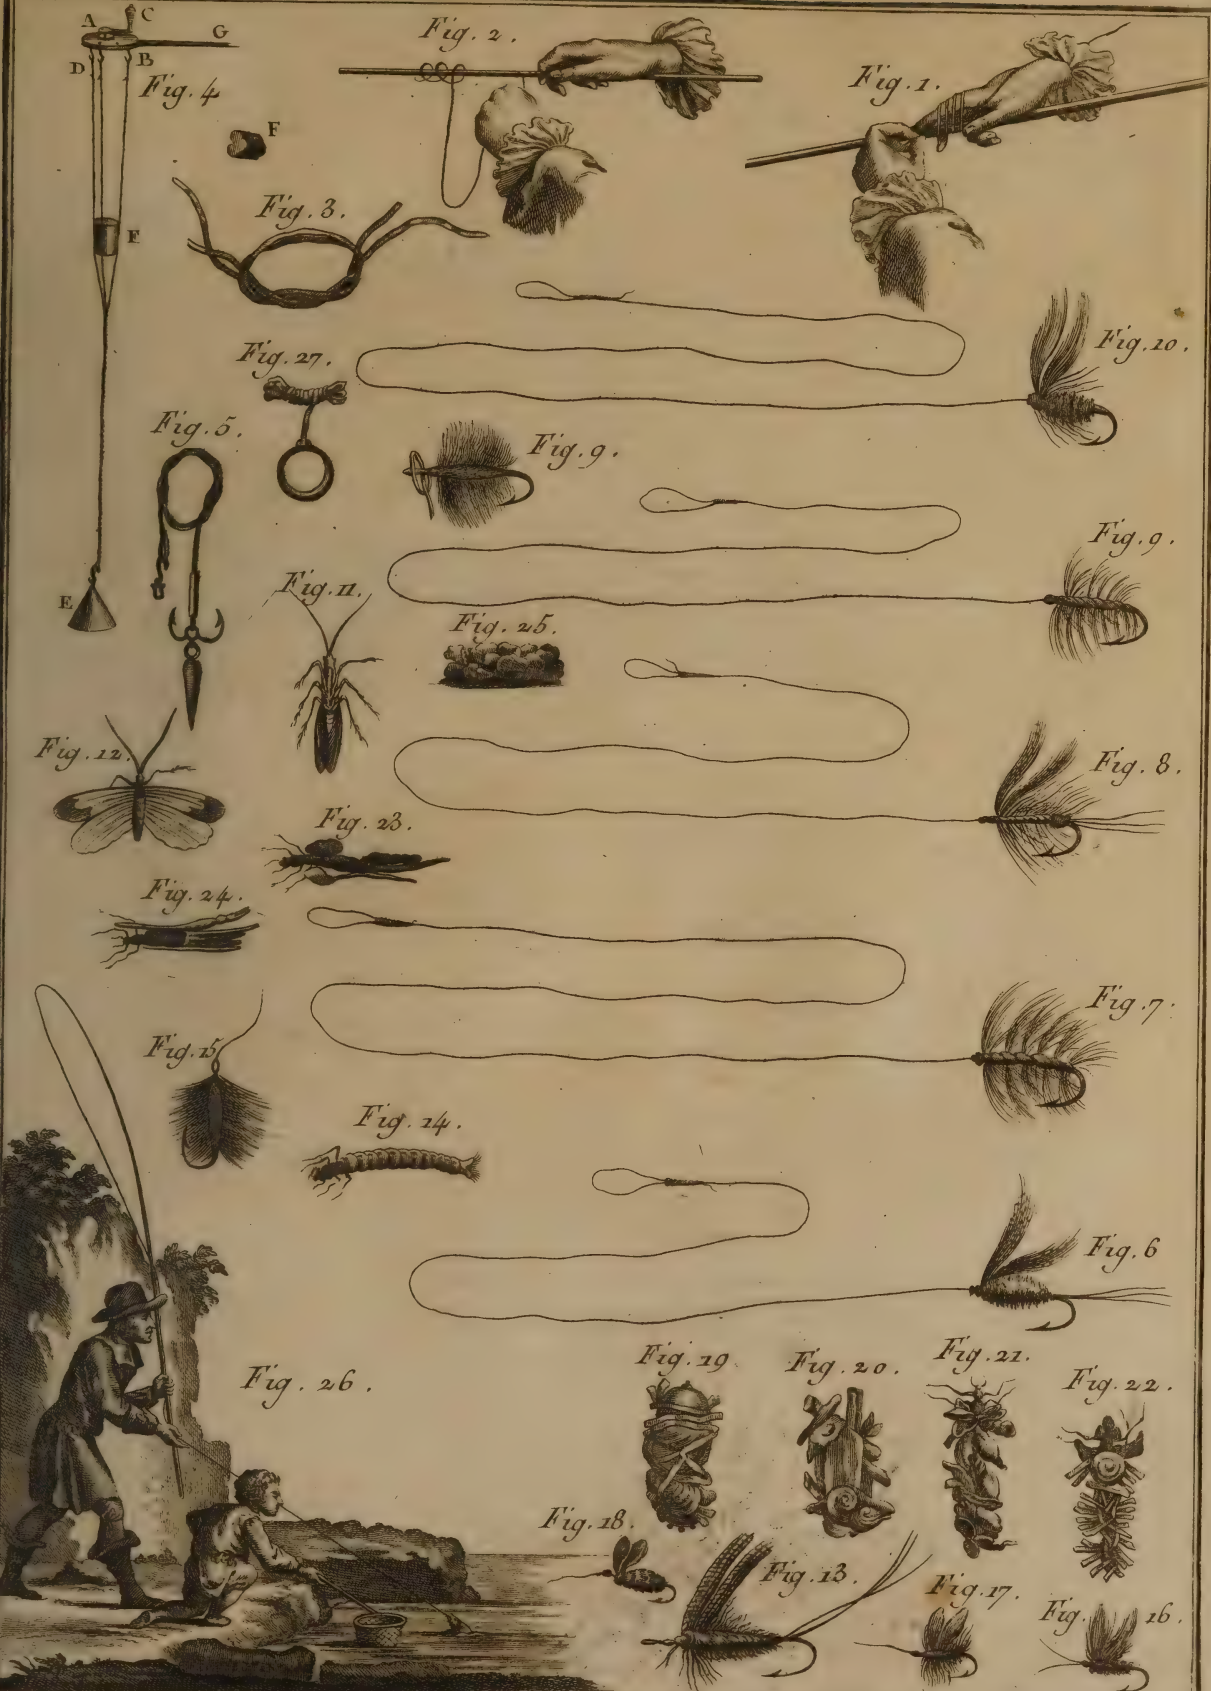 A
C
G
D
B
Fig. 4
F
Fig. 2.
Fig. 1.
Fig. 3.
E
Fig. 27.
Fig. 10.
Fig. 5.
Fig. 9.
Fig. 9.
E
Fig. 11.
Fig. 25.
Fig. 12.
Fig. 8.
Fig. 23.
Fig. 24.
Fig. 7.
Fig. 15
Fig. 14.
Fig. 6
Fig. 26.
Fig. 19
Fig. 20.
Fig. 21.
Fig. 22.
Fig. 18.
Fig. 13.
Fig. 17.
Fig. 16.